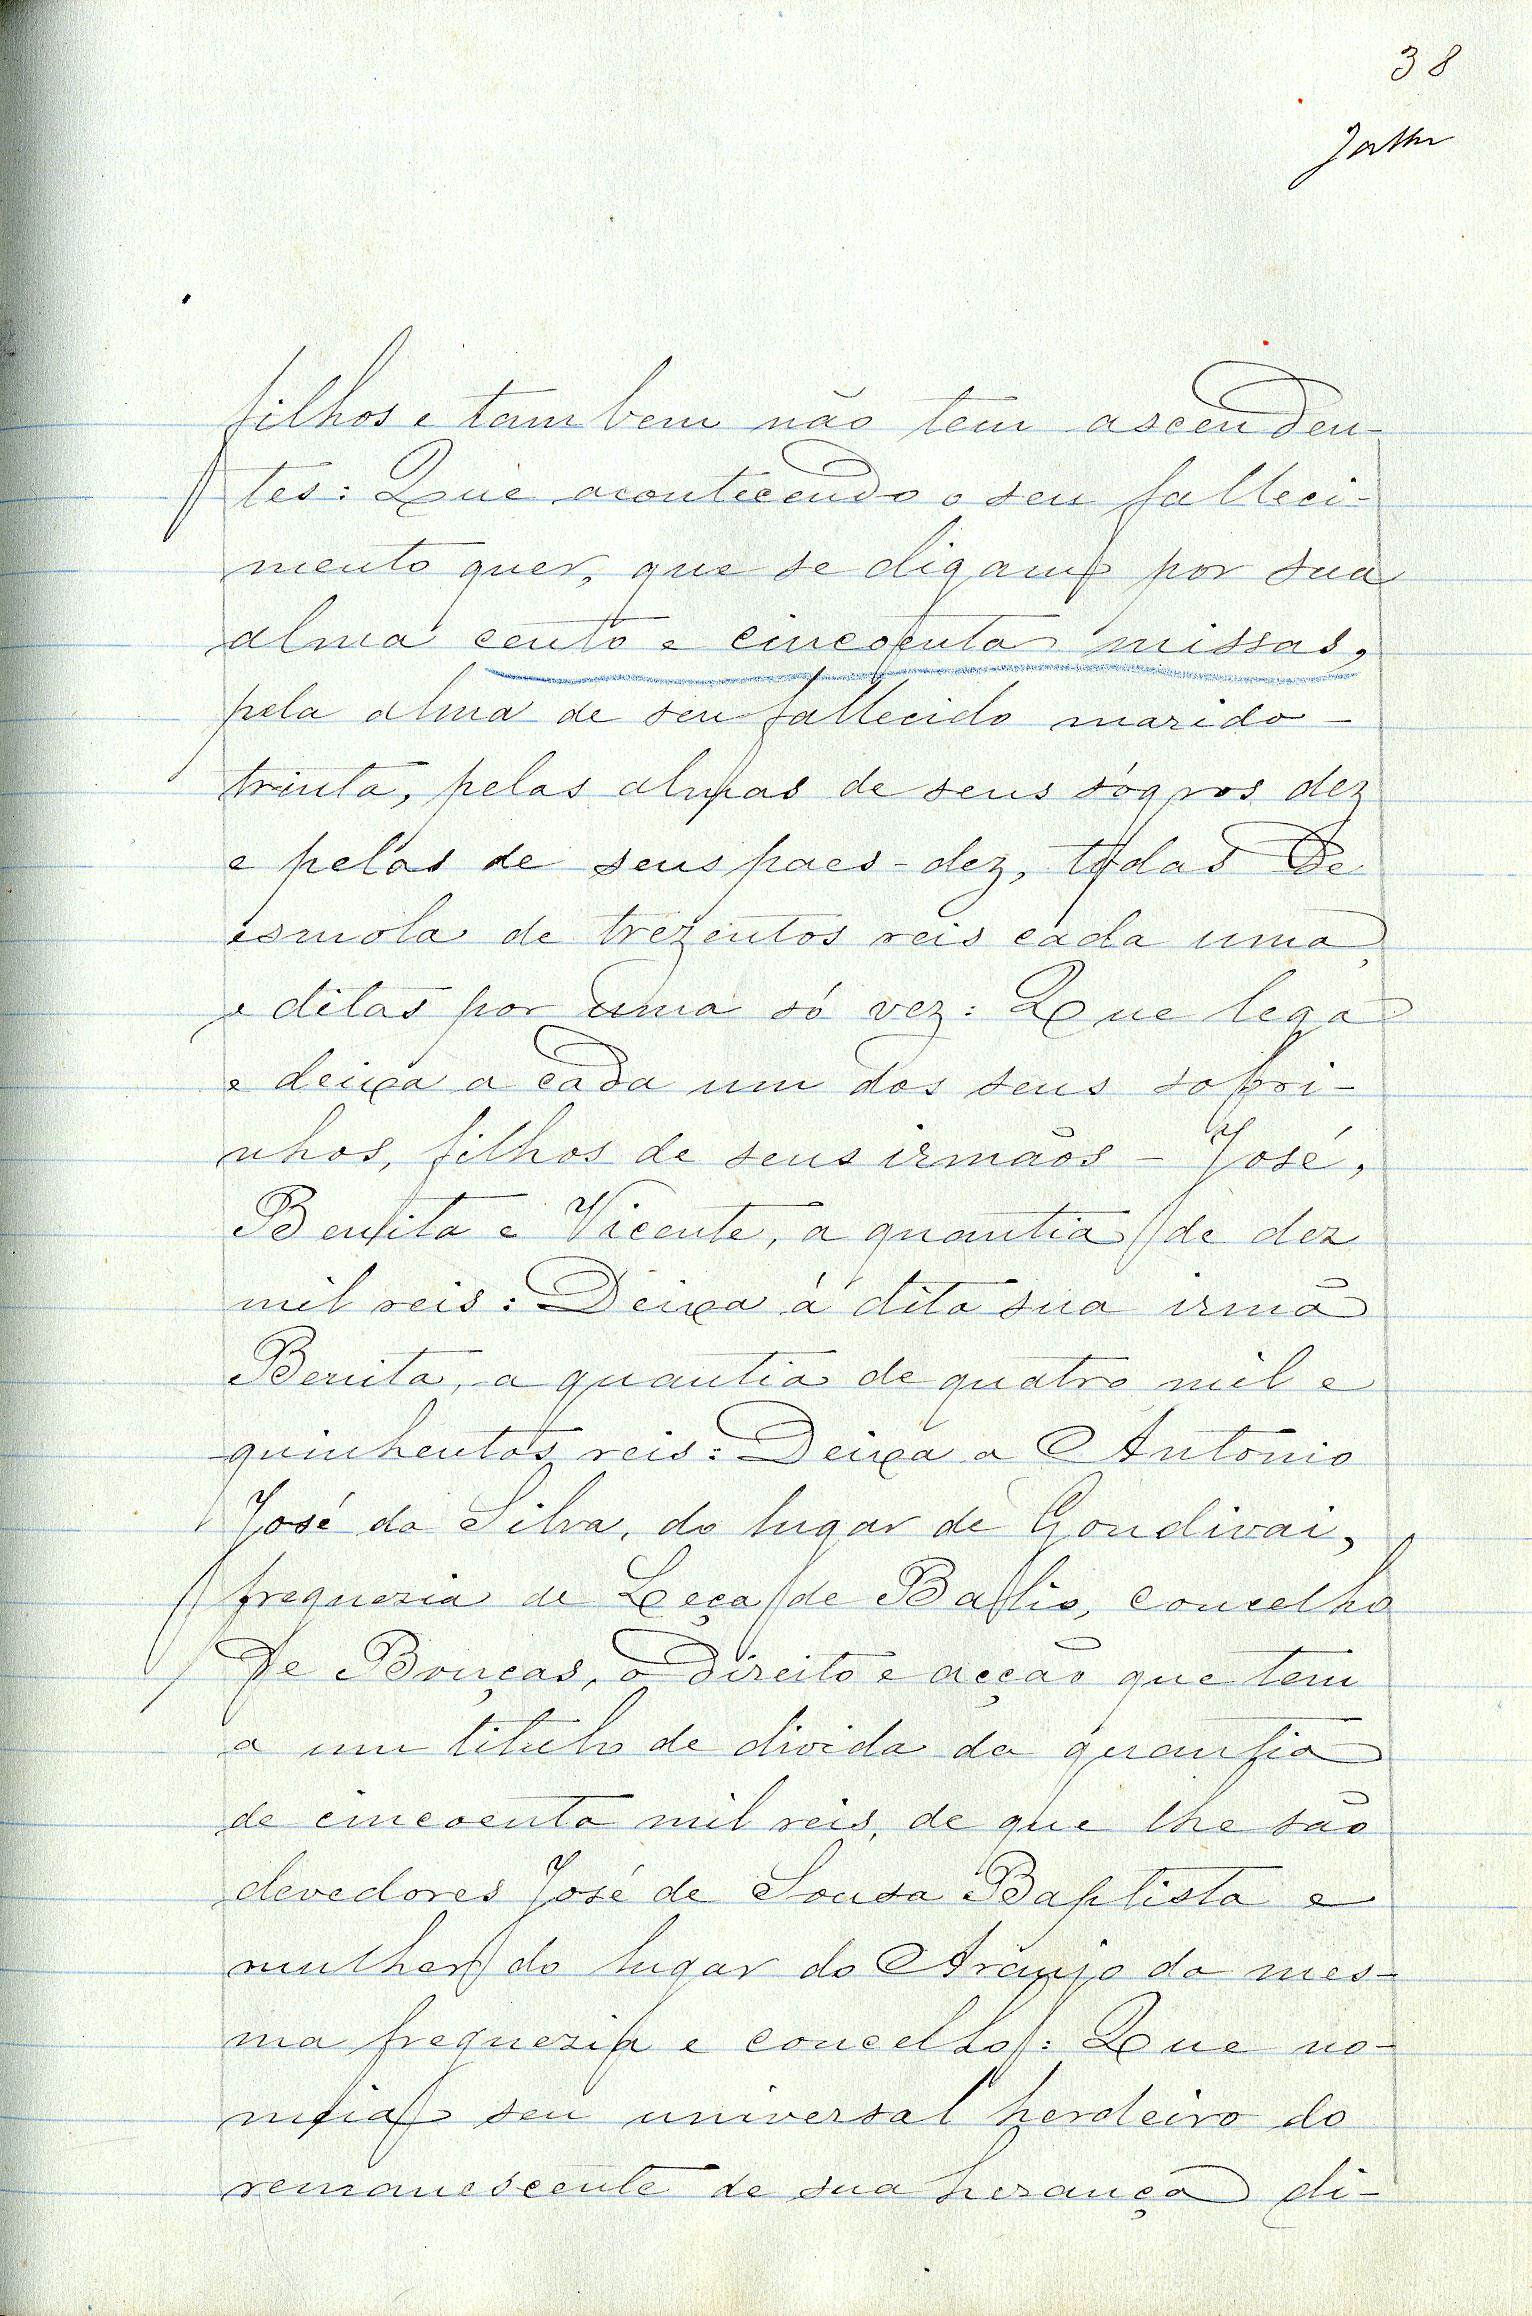 38
filhos e tambem não tem ascenden-
tes: Que acontecendo o seu falleci-
mento quer, que se digam por sua
alma cento e cincoenta missas,
pela alma de seu fallecido marido -
trinta, pelas almas de seus sógros dez
e pelas de seus paes - dez, todas de
esmola de trezentos reis cada uma,
e ditas por uma só vez: Que lega
e deixa a cada um dos seus sobri-
nhos, filhos de seus irmãos - José,
Benita e Vicente, a quantia de dez
mil reis: Deixa á dita sua irmã
Benita, a quantia de quatro mil e
quinhentos reis: Deixa a Antonio
José da Silva, do lugar de Gondivai,
freguezia de Leça de Balio, concelho
de Bouças, o direito e acção que tem
a um titulo de divida da quantia
de cincoenta mil reis, de que lhe são
devedores José de Sousa Baptista e
mulher do lugar do Araujo da mes-
ma freguezia e concelho: Que no-
meia seu universal herdeiro do
remanescente de sua herança di-